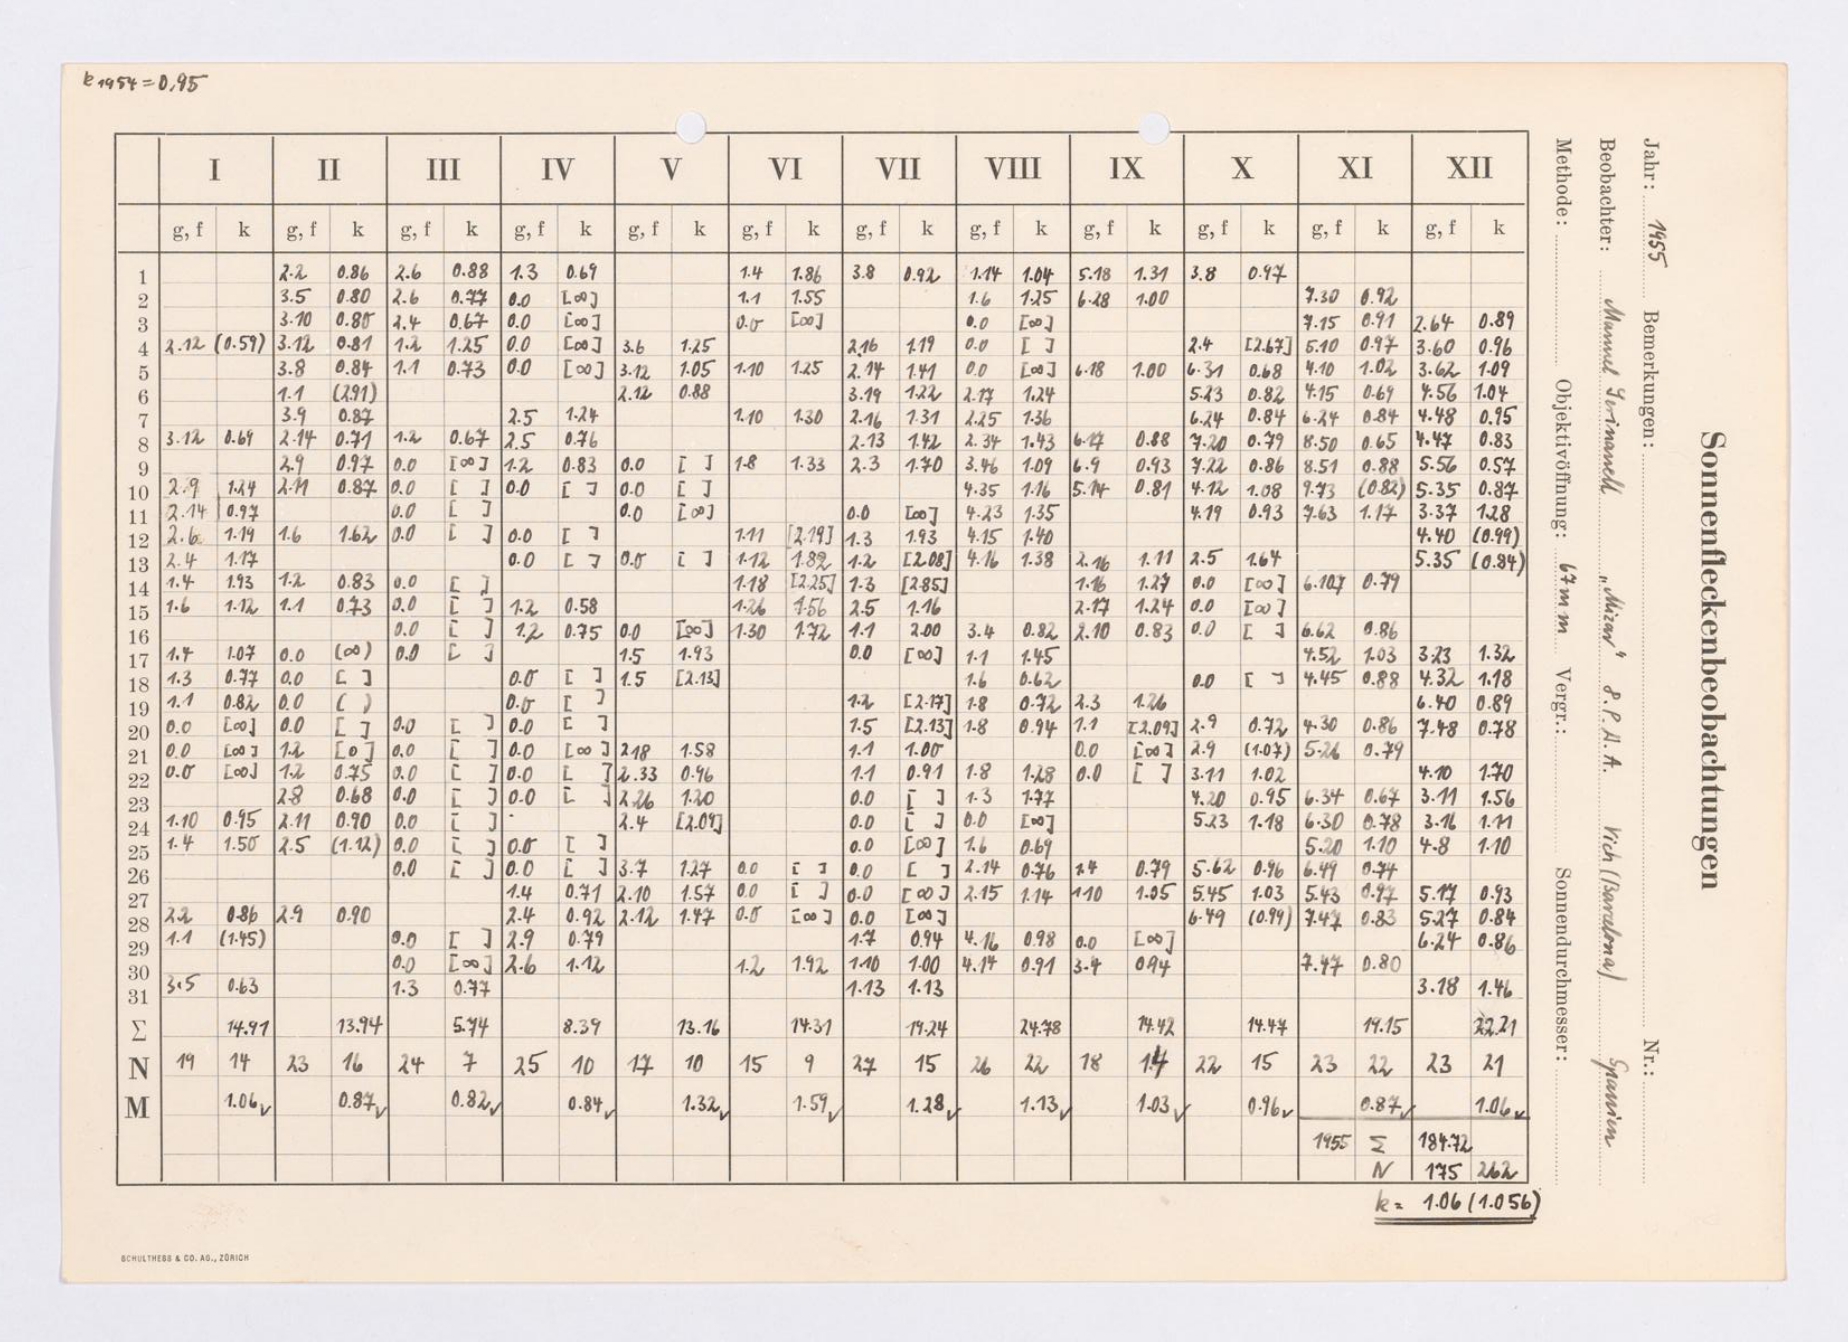 k 1954 = 0,95
I II III IV V VI VII VIII IX X XI XII
g, f k g, f k g, f k g, f k g, f k g, f k g, f k g, f k g, f k g, f k g, f k g, f k
1 2.2 0.86 2.6 0.88 1.3 0.69 1.4 1.86 3.8 0.92 1.14 1.04 5.18 1.31 3.8 0.97
2 3.5 0.80 2.6 0.77 0.0 [∞] 1.1 1.55 1.6 1.25 6.28 1.00 7.30 0.92
3 3.10 0.80 2.4 0.67 0.0 [∞] 0.0 [∞] 0.0 [∞] 7.15 0.91 2.64 0.89
4 2.12 (0.59) 3.12 0.81 1.2 1.25 0.0 [∞] 3.6 1.25 2.16 1.19 0.0 [ ] 2.4 [2.67] 5.10 0.97 3.60 0.96
5 3.8 0.84 1.1 0.73 0.0 [∞] 3.12 1.05 1.10 1.25 2.14 1.41 0.0 [∞] 6.18 1.00 6.31 0.68 4.10 1.02 3.62 1.09
6 1.1 (2.91) 2.12 0.88 3.19 1.22 2.17 1.24 5.23 0.82 4.15 0.69 4.56 1.04
7 3.9 0.87 2.5 1.24 1.10 1.30 2.16 1.31 2.25 1.36 6.24 0.84 6.24 0.84 4.48 0.95
8 3.12 0.69 2.14 0.71 1.2 0.67 2.5 0.76 2.13 1.42 2.34 1.43 6.17 0.88 7.20 0.79 8.50 0.65 4.47 0.83
9 2.9 0.97 0.0 [∞] 1.2 0.83 0.0 [ ] 1.8 1.33 2.3 1.70 3.46 1.09 6.9 0.93 7.22 0.86 8.51 0.88 5.56 0.57
10 2.9 1.24 2.11 0.87 0.0 [ ] 0.0 [ ] 0.0 [ ] 4.35 1.16 5.14 0.81 4.12 1.08 9.73 (0.82) 5.35 0.87
11 2.14 0.97 0.0 [ ] 0.0 [∞] 0.0 [∞] 4.23 1.35 4.19 0.93 7.63 1.17 3.37 1.28
12 2.6 1.19 1.6 1.62 0.0 [ ] 0.0 [ ] 1.11 [2.19] 1.3 1.93 4.15 1.40 4.40 (0.99)
13 2.4 1.17 0.0 [ ] 0.0 [ ] 1.12 1.82 1.2 [2.08] 4.16 1.38 2.16 1.11 2.5 1.64 5.35 (0.84)
14 1.4 1.93 1.2 0.83 0.0 [ ] 1.18 [2.25] 1.3 [2.85] 1.16 1.27 0.0 [∞] 6.107 0.79
15 1.6 1.12 1.1 0.73 0.0 [ ] 1.2 0.58 1.26 1.56 2.5 1.16 2.17 1.24 0.0 [∞]
16 0.0 [ ] 1.2 0.75 0.0 [∞] 1.30 1.72 1.1 2.00 3.4 0.82 2.10 0.83 0.0 [ ] 6.62 0.86
17 1.4 1.07 0.0 (∞) 0.0 [ ] 1.5 1.93 0.0 [∞] 1.1 1.45 4.52 1.03 3.23 1.32
18 1.3 0.77 0.0 [ ] 0.0 [ ] 1.5 [2.13] 1.6 0.62 0.0 [ ] 4.45 0.88 4.32 1.18
19 1.1 0.82 0.0 ( ) 0.0 [ ] 1.2 [2.17] 1.8 0.72 2.3 1.26 6.40 0.89
20 0.0 [∞] 0.0 [ ] 0.0 [ ] 0.0 [ ] 1.5 [2.13] 1.8 0.94 1.1 [2.09] 2.9 0.72 4.30 0.86 7.48 0.78
21 0.0 [∞] 1.2 [0] 0.0 [ ] 0.0 [∞] 2.18 1.58 1.1 1.00 0.0 [∞] 2.9 (1.07) 5.26 0.79
22 0.0 [∞] 1.2 0.75 0.0 [ ] 0.0 [ ] 2.33 0.96 1.1 0.91 1.8 1.28 0.0 [ ] 3.11 1.02 4.10 1.70
23 2.8 0.68 0.0 [ ] 0.0 [ ] 2.26 1.20 0.0 [ ] 1.3 1.77 4.20 0.95 6.34 0.67 3.11 1.56
24 1.10 0.95 2.11 0.90 0.0 [ ] 2.4 [2.09] 0.0 [ ] 0.0 [∞] 5.23 1.18 6.30 0.78 3.16 1.11
25 1.4 1.50 2.5 (1.12) 0.0 [ ] 0.0 [ ] 0.0 [∞] 1.6 0.69 5.20 1.10 4.8 1.10
26 0.0 [ ] 0.0 [ ] 3.7 1.27 0.0 [ ] 0.0 [ ] 2.14 0.76 1.4 0.79 5.62 0.96 6.49 0.74
27 1.4 0.71 2.10 1.57 0.0 [ ] 0.0 [∞] 2.15 1.14 1.10 1.05 5.45 1.03 5.43 0.97 5.17 0.93
28 2.2 0.86 2.9 0.90 2.4 0.92 2.12 1.47 0.0 [∞] 0.0 [∞] 6.49 (0.99) 7.47 0.83 5.27 0.84
29 1.1 (1.45) 0.0 [ ] 2.9 0.79 1.7 0.94 4.16 0.98 0.0 [∞] 6.24 0.86
30 0.0 [∞] 2.6 1.12 1.2 1.92 1.10 1.00 4.14 0.91 3.4 0.94 7.47 0.80
31 3.5 0.63 1.3 0.77 1.13 1.13 3.18 1.46
Σ 14.91 13.94 5.74 8.39 13.16 14.31 19.24 24.78 14.42 14.47 19.15 22.21
N 19 14 23 16 24 7 25 10 17 10 15 9 27 15 26 22 18 14 22 15 23 22 23 21
M 1.06✓ 0.87✓ 0.82✓ 0.84✓ 1.32✓ 1.59✓ 1.28✓ 1.13✓ 1.03✓ 0.96✓ 0.87✓ 1.06✓
1955 Σ 184.72
N 175 262
k = 1.06 (1.056)
SCHULTHESS & CO. AG., ZÜRICH
Sonnenfleckenbeobachtungen
Jahr: 1955 Bemerkungen: Nr.:
Beobachter: Manuel "Mizar" S.P.A.A. Vich (Barcelona) Spanien
Methode: Objektivöffnung: 67 mm Vergr.: Sonnendurchmesser: